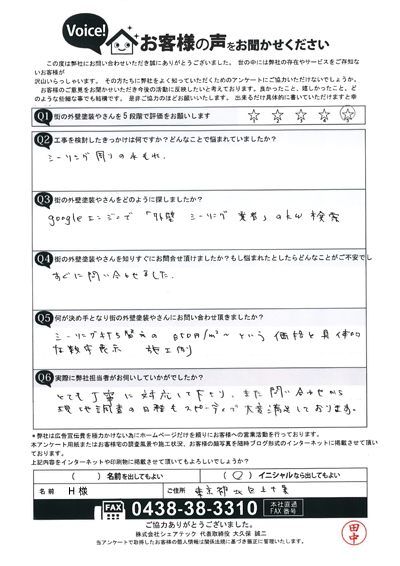 Voice!
お客様の声をお聞かせください
この度は弊社にお問い合わせいただき誠にありがとうございました。世の中には弊社の存在やサービスをご存知ないお客様が
沢山いらっしゃいます。その方たちに弊社をよく知っていただくためのアンケートにご協力いただけないでしょうか。
お客様のご意見をお聞かせいただき今後の活動に反映したいと考えております。良かったこと、嬉しかったこと、ど
のような些細な事でも結構です。是非ご協力のほどお願いいたします。出来るだけ具体的に書いていただけますと幸
Q1 街の外壁塗装やさんを5段階で評価をお願いします
Q2 工事を検討したきっかけは何ですか?どんなことで悩まれていましたか?
シーリング周りの水もれ.
Q3 街の外壁塗装やさんをどのように探しましたか?
googleエンジンで「外壁 シーリング 業者」の 検索
Q4 街の外壁塗装やさんを知りすぐにお問合せ頂けましたか?もし悩まれたとしたらどんなことがご不安でし
すぐに問い合わせました.
Q5 何が決め手となり街の外壁塗装やさんにお問い合わせ頂きましたか?
シーリング打ち替えの 850円/m~という価格と具体的
な数字表示 施工例
Q6 実際に弊社担当者がお伺いしていかがでしたか?
とても丁寧に対応して下さり、また問い合わせから
現地調査の日程もスピーディで大変満足しております。
*弊社は広告宣伝費を極力かけない為にホームページだけを頼りにお客様への営業活動を行っております。
本アンケート用紙またはお客様宅の調査風景や施工状況、お客様の顔写真を随時ブログ形式のインターネットに掲載させて頂いております。
上記内容をインターネットや印刷物に掲載させて頂いてもよろしいでしょうか?
( )名前を出してもよい (○)イニシャルなら出してもよい
名前 H様 ご住所 東京都北区上十条
FAX 0438-38-3310 本社直通 FAX番号
ご協力ありがとうございました。
株式会社シェアテック 代表取締役 大久保 誠二
当アンケートで取得したお客様の個人情報は関係法規に基づき厳正に管理いたします。
田中